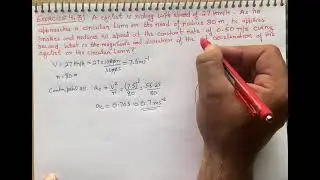 Exercise 4.31) A cyclist is riding with speed of 27 km/h. As he
approaches a circular turn on the road of radius 80 m, he applies
brakes and reduces his speed at the constant rate of 0.50 m/s every
second. What is the magnitude and direction of the acceleration of the
cyclist on the circular turn?
V = 27 km/h = 7.5 m/s
r = 80 m
ac = V²/r = (7.5)²/80 = 56.25/80
ac = 0.703 = 0.7 ms⁻²